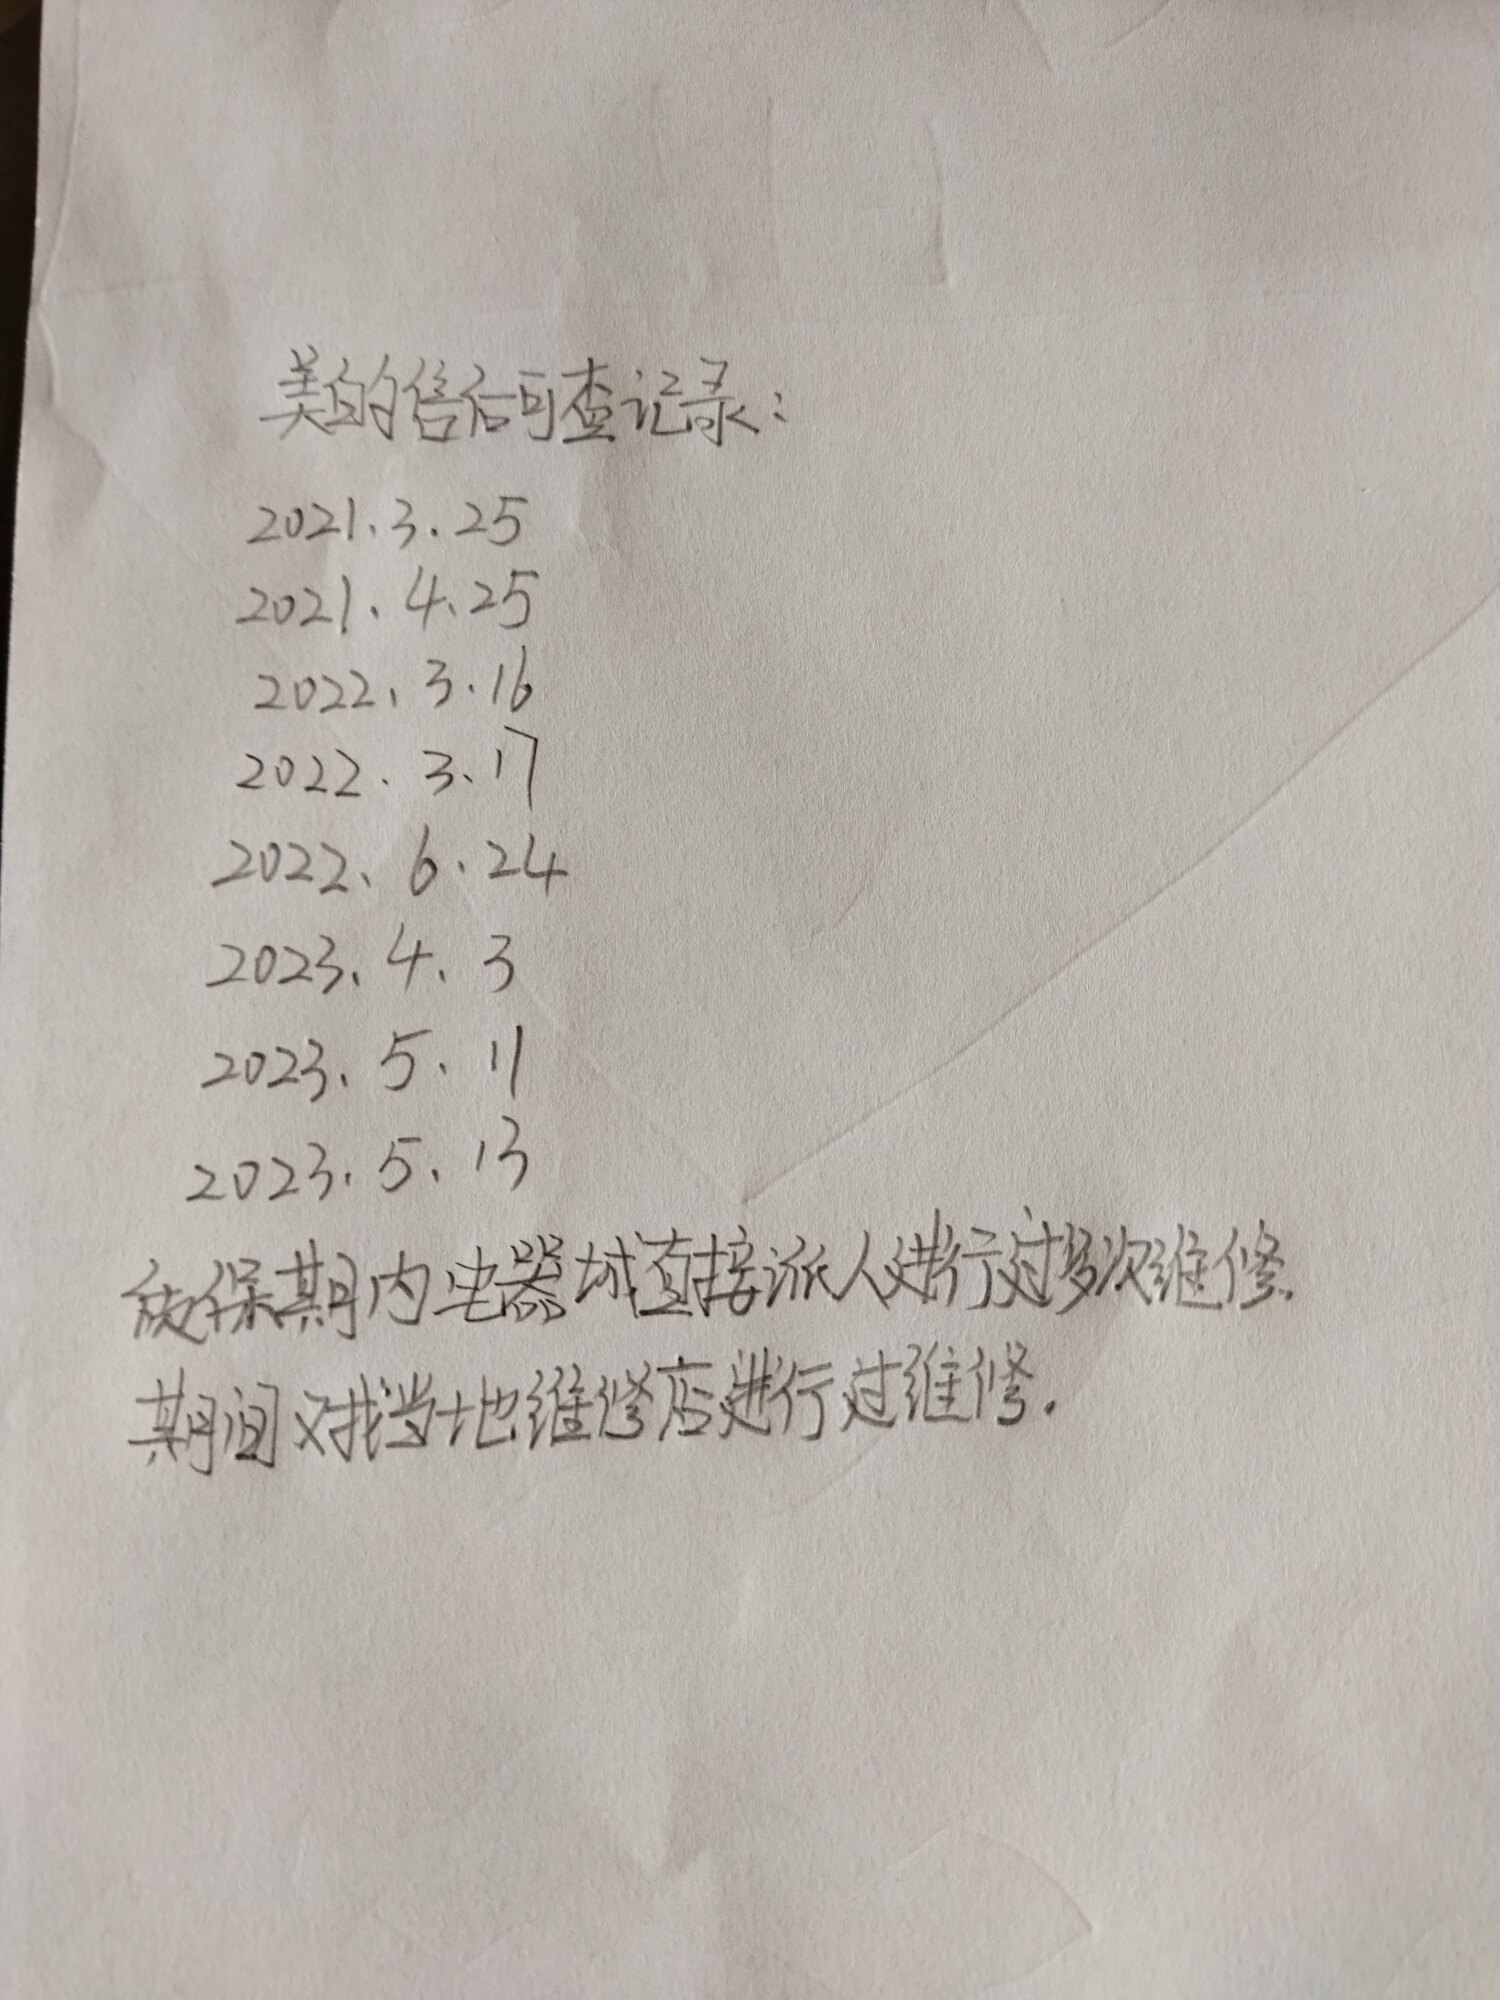 美的售后可查记录:
2021.3.25
2021.4.25
2022.3.16
2022.3.17
2022.6.24
2023.4.3
2023.5.11
2023.5.13
保期内电器城直接派人进行过多次维修.
期间对找当地维修店进行过维修.